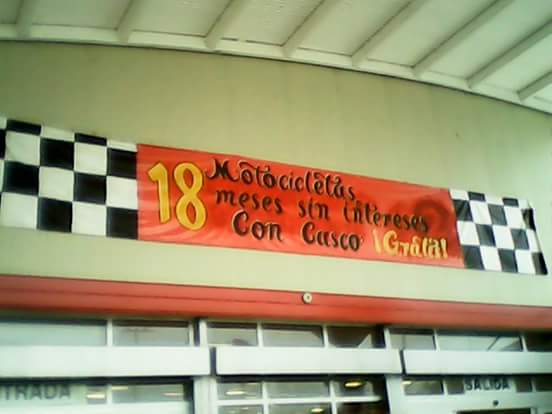 18 Motocicletas
meses sin intereses
Con Casco ¡Gratis!
TRADA
SALIDA